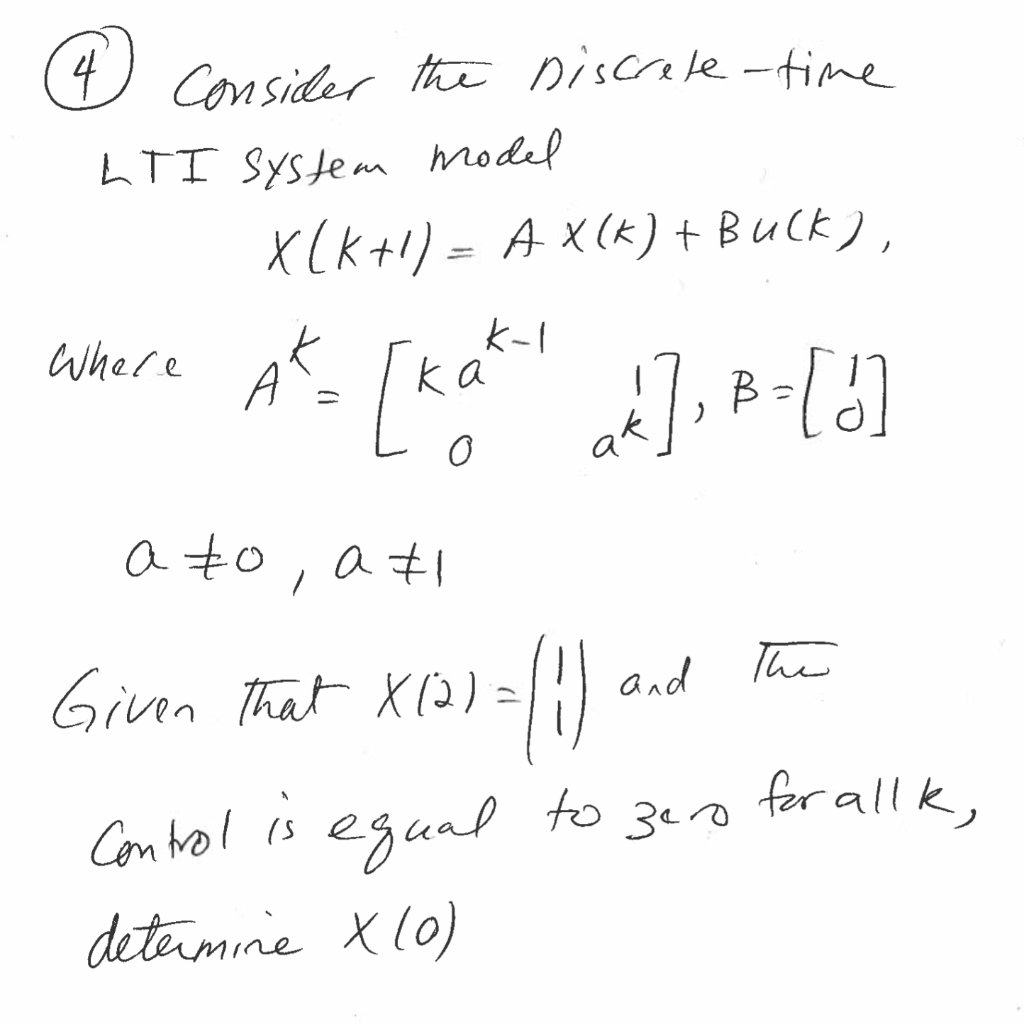 ④ Consider the Discrete-time
LTI System model
X(k+1) = A X(k) + B u(k),
Where A^k = [k a^{k-1} 1; 0 a^k], B = [1; 0]
a ≠ 0, a ≠ 1
Given that X(2) = (1; 1) and The
Control is equal to zero for all k,
determine X(0)